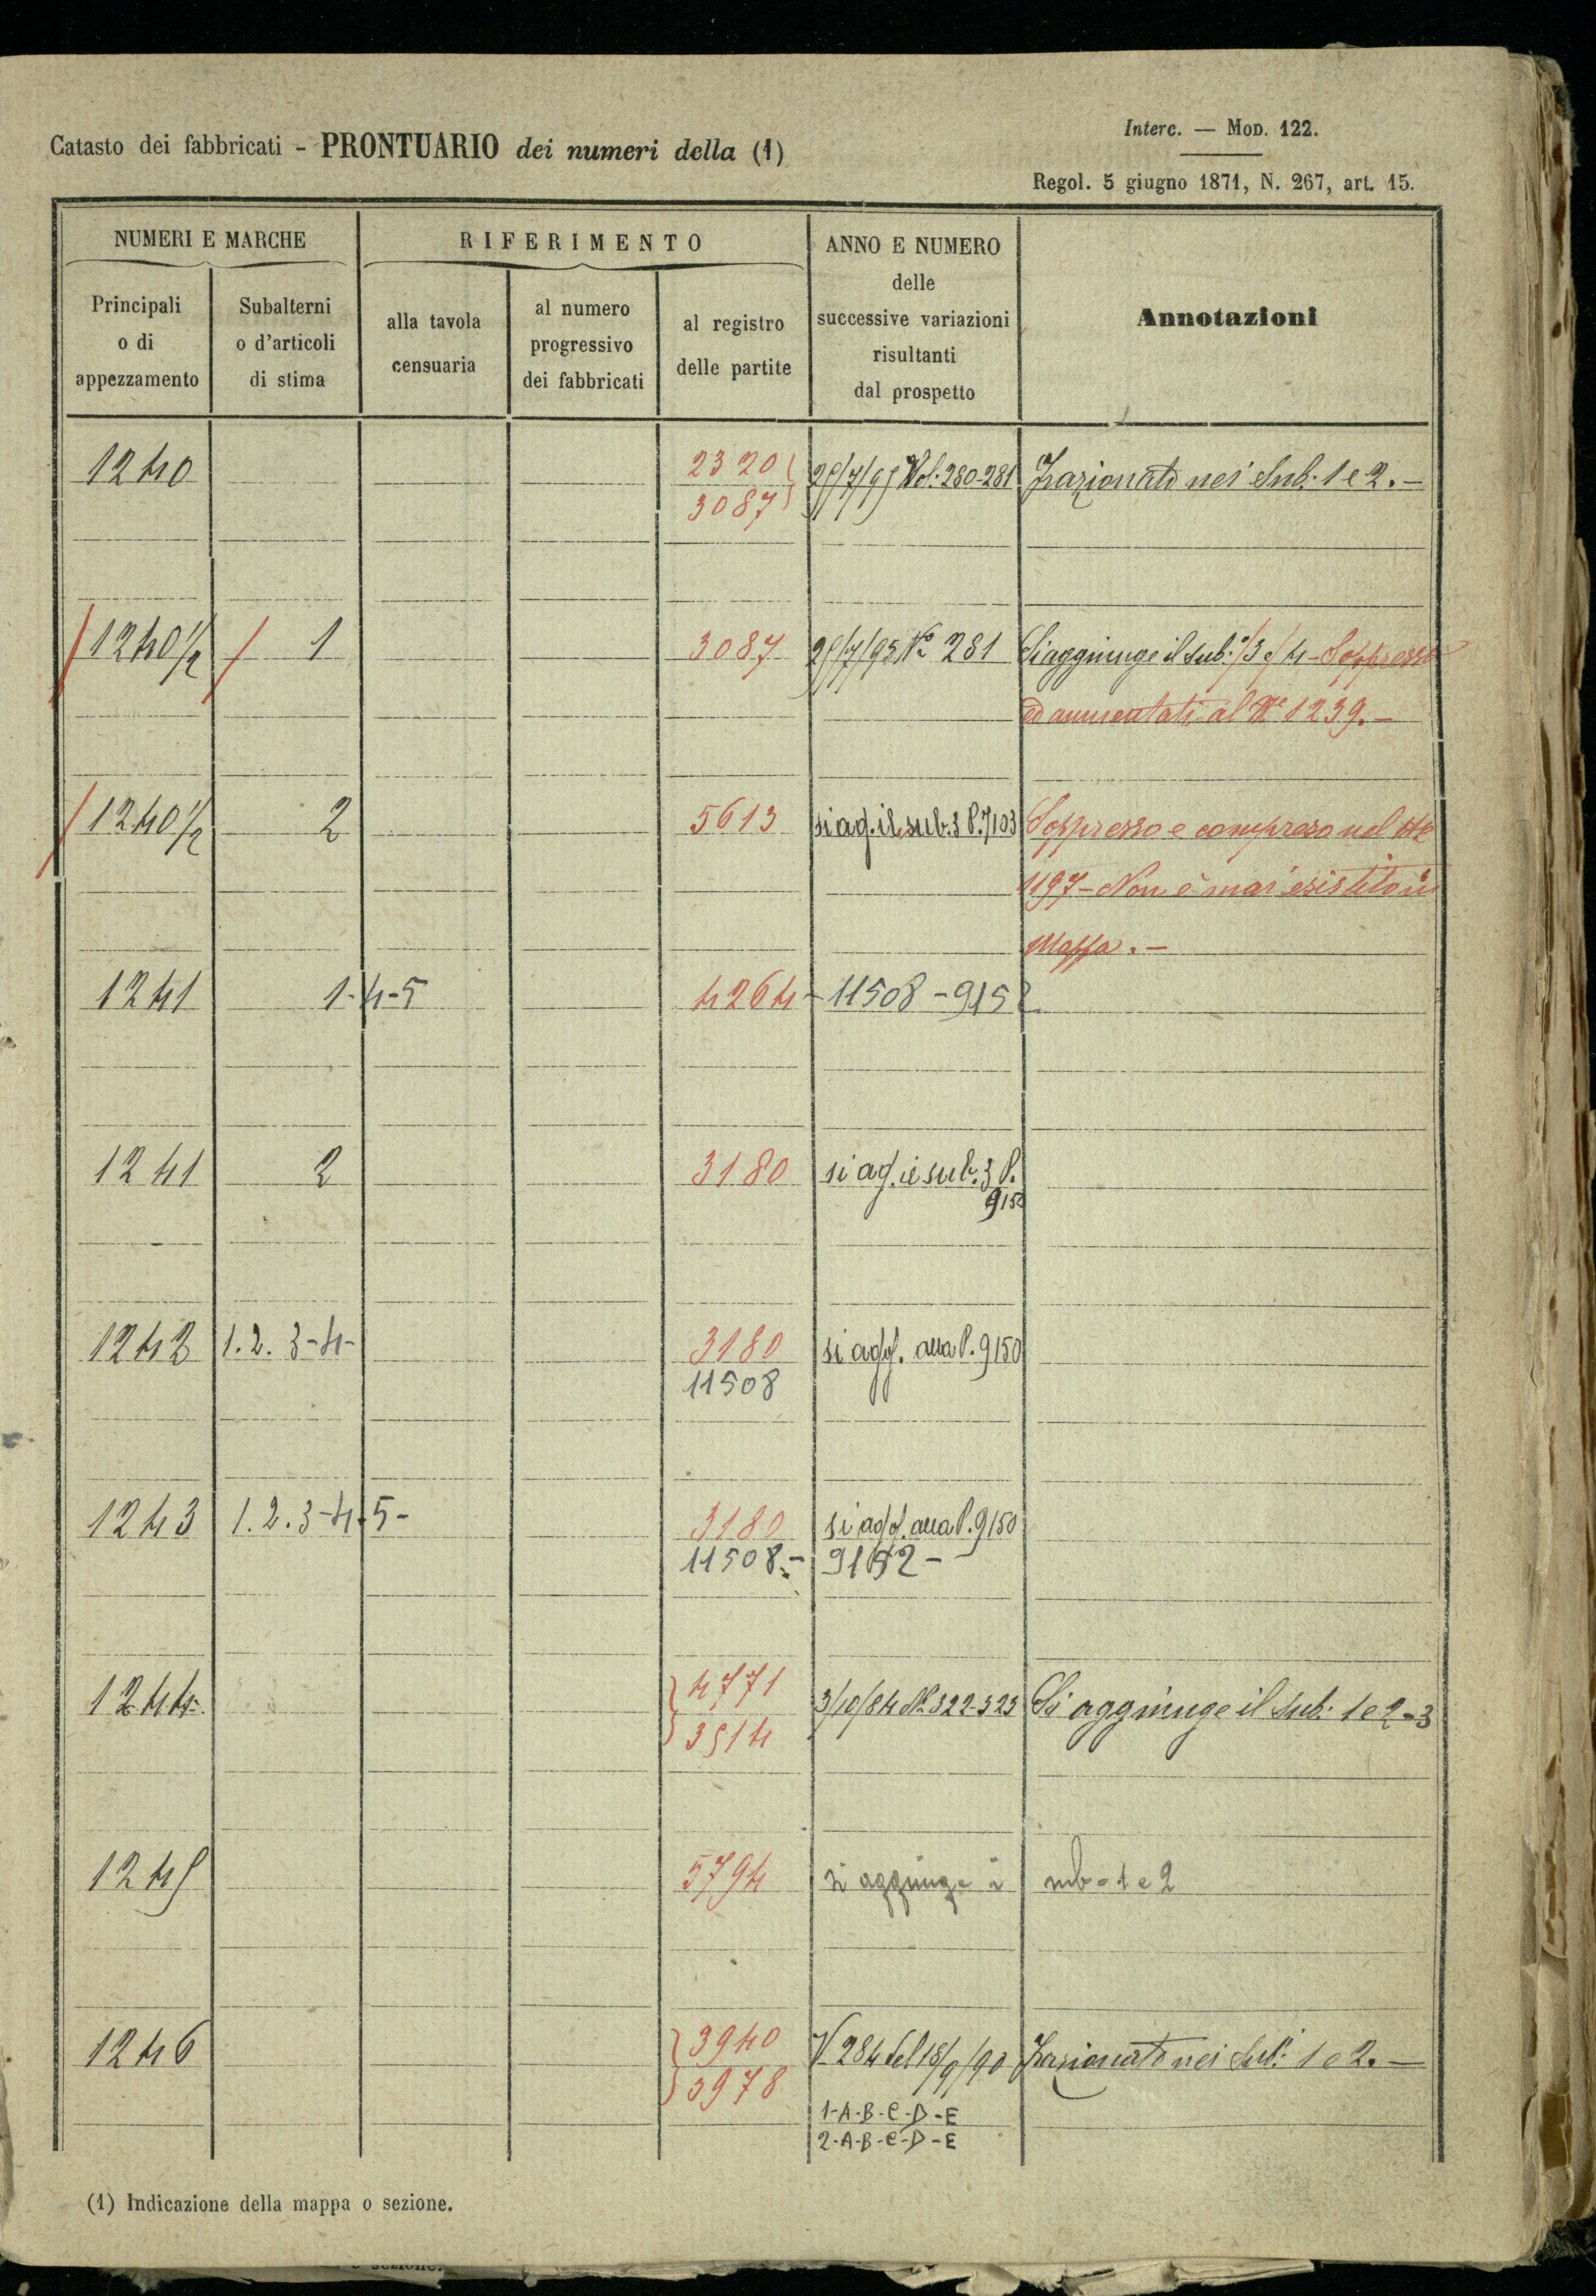 Interc. — Mod. 122.
Catasto dei fabbricati - PRONTUARIO dei numeri della (1)
Regol. 5 giugno 1871, N. 267, art. 15.
NUMERI E MARCHE
RIFERIMENTO
ANNO E NUMERO
delle
successive variazioni
risultanti
dal prospetto
Annotazioni
Principali
o di
appezzamento
Subalterni
o d'articoli
di stima
alla tavola
censuaria
al numero
progressivo
dei fabbricati
al registro
delle partite
1240 2320 280-281 Frazionato nei Sub. 1 e 2. —
3087
1240 1/2 1 3087 No 281 Si aggiunge il sub. 3 e 4 - Soppresso
ed aumentati al No 1239. —
1240 1/2 2 5613 si ag. il sub. 3 P. 7103 Soppresso e compreso nel No
1197 - Non è mai esistito in
Mappa. —
1241 1-4-5 4264 - 11508 - 9152
1241 2 3180 si ag. il sub. 3 P.
9150
1242 1. 2. 3-4- 3180 si agg. alla P. 9150
11508
1243 1. 2. 3-4-5- 3180 si agg. alla P. 9150
11508. - 9152 -
1244 4771 3/10/84 No 322-323 Si aggiunge il Sub. 1 e 2-3
3514
1245 5794 si aggiunge i sub - 1 e 2
1246 3940 V 284 del 18/9/90 Frazionato nei Sub. 1 e 2. —
3978
1-A-B-C-D-E
2-A-B-C-D-E
(1) Indicazione della mappa o sezione.
e sezione.